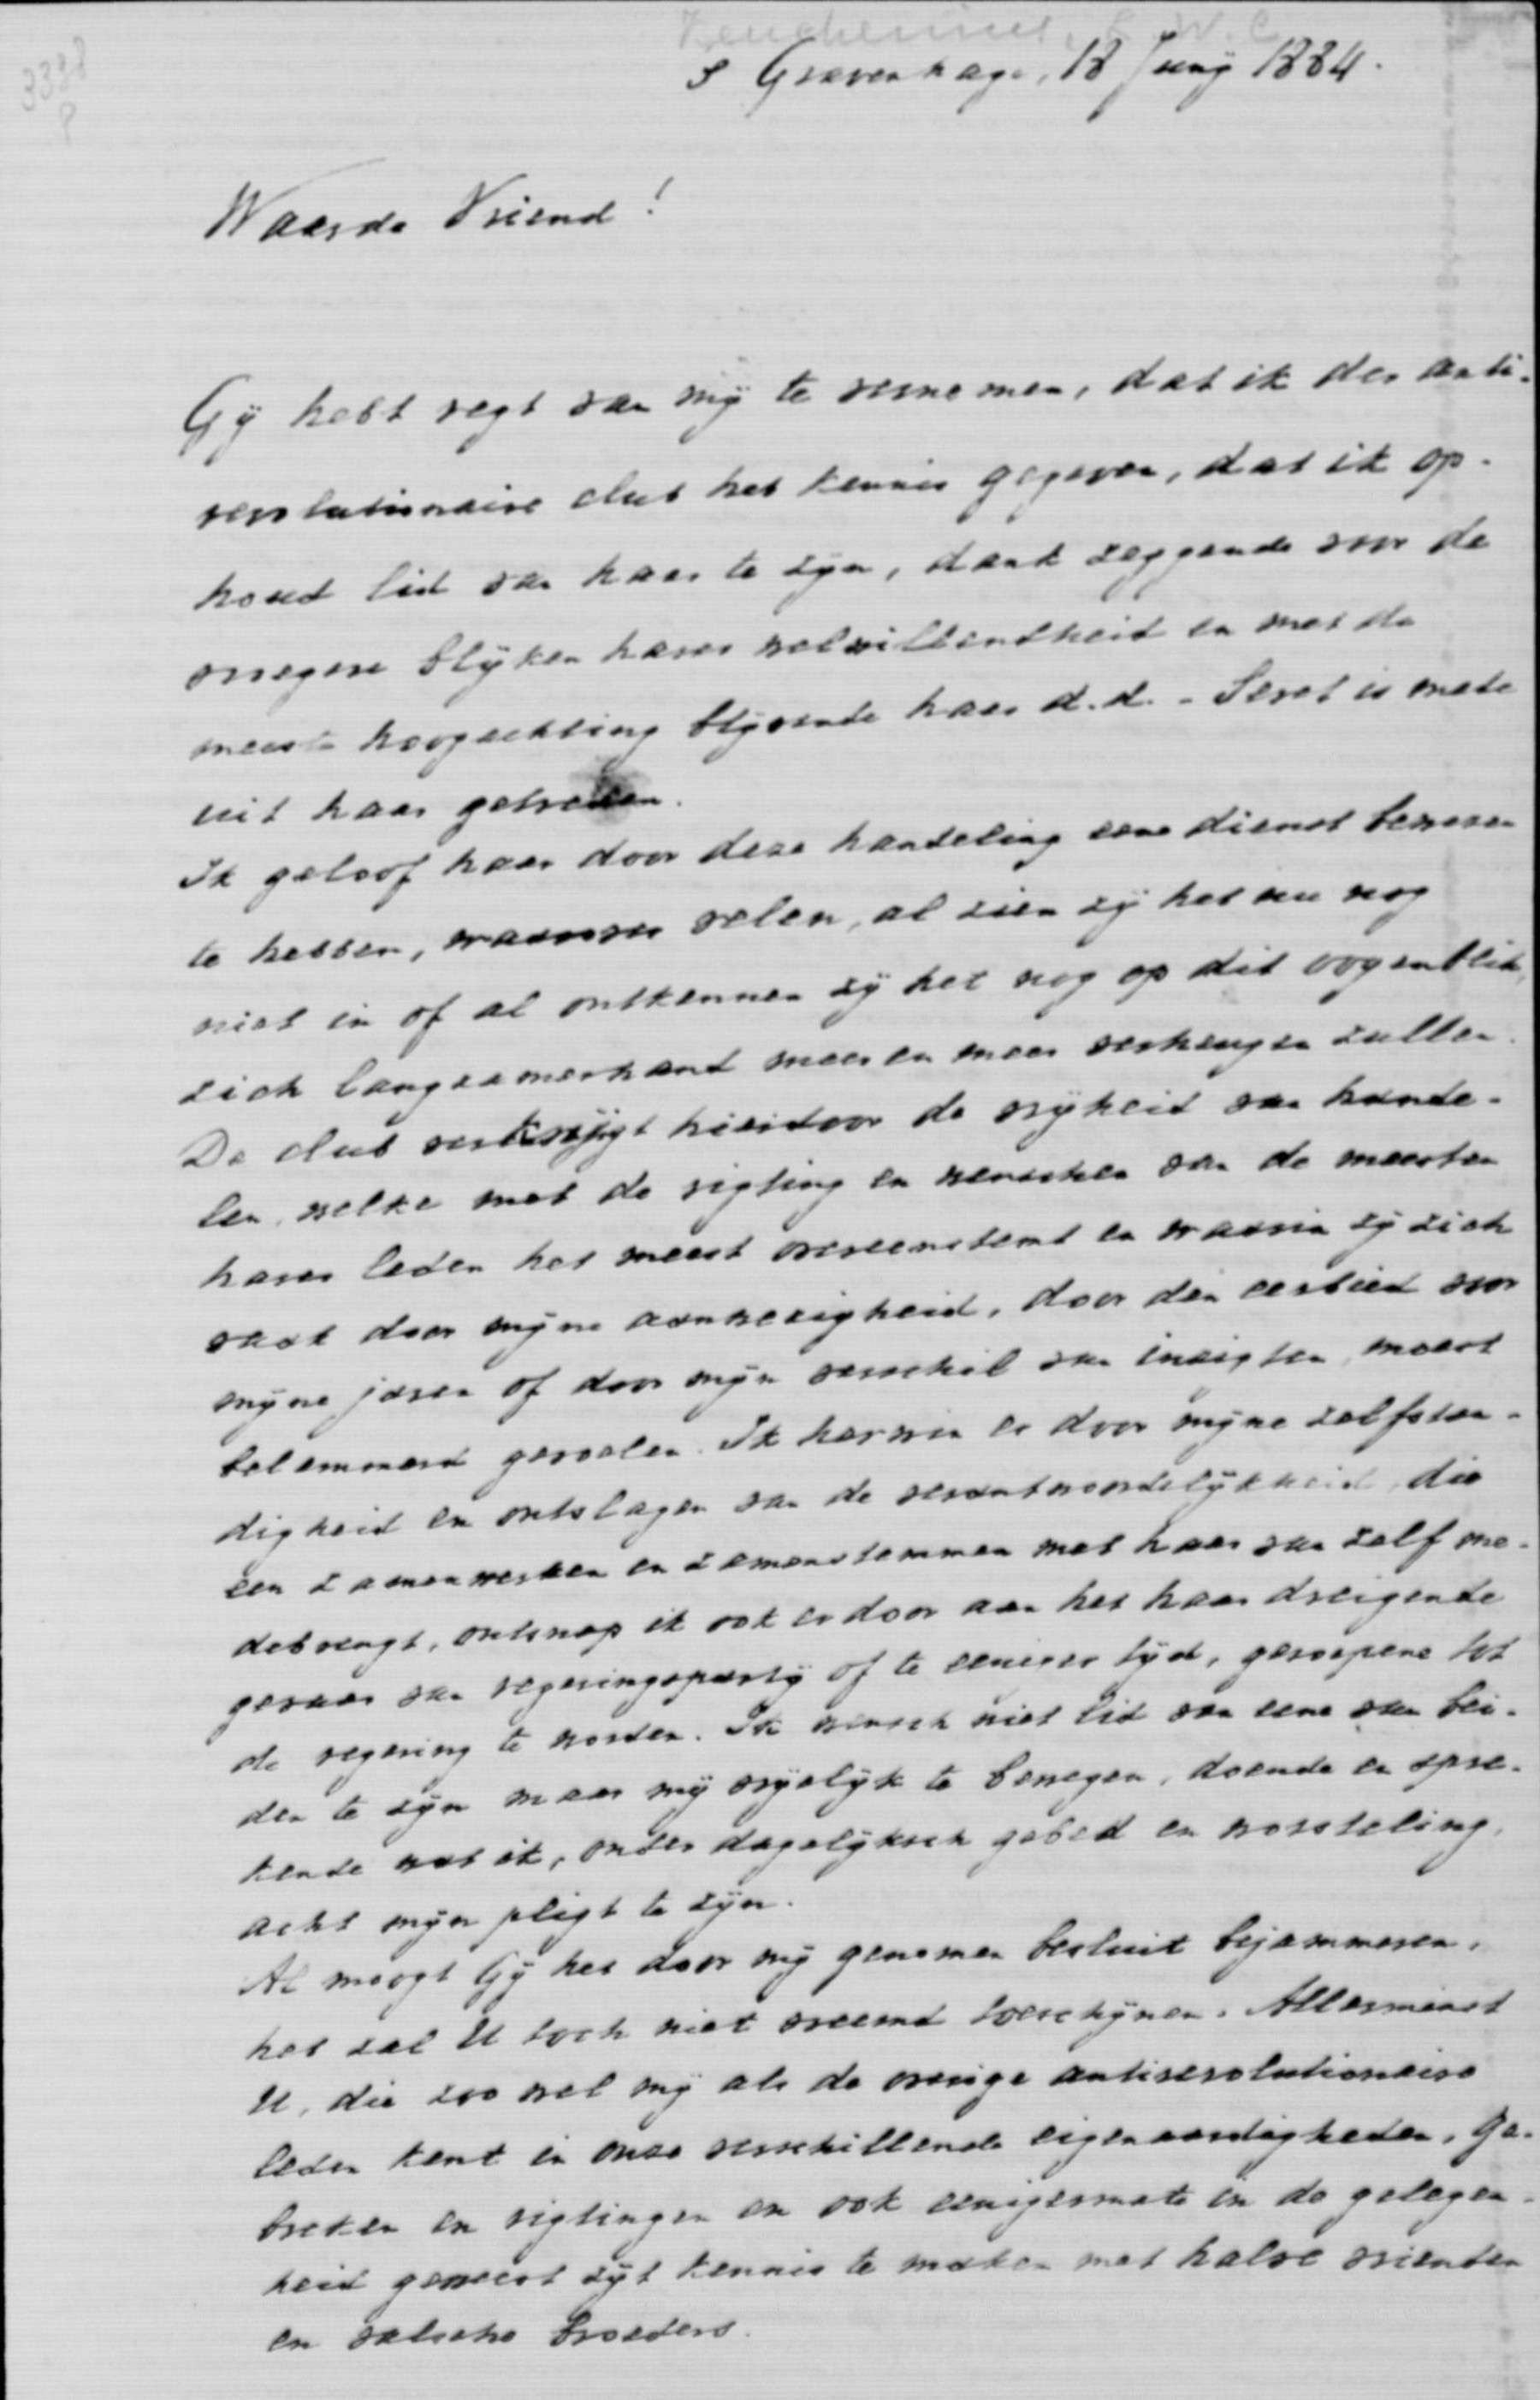 3398
Keuchenius, L. W. C.
s Gravenhage, 18 Juny 1884.
Waarde Vriend!
Gy hebt regt van my te vernemen, dat ik der anti-
revolutionaire club heb kennis gegeven, dat ik op-
houd lid van haar te zyn, dank zeggende voor de
vroegere blyken harer welwillendheid en met de
meeste hoogachting blyvende haar d.d. - Seret is mede
uit haar getreden.
Ik geloof haar door deze handeling eene dienst bewezen
te hebben, waarover velen, al zien zy het nu nog
niet in of al ontkennen zy het nog op dit oogenblik,
zich langzamerhand meer en meer verheugen zullen.
De club verkrygt hierdoor de vryheid van hande-
len, welke met de rigting en wenschen van de meesten
harer leden het meest overeenstemt en waarin zy zich
vaak door myne aanwezigheid, door den eerbied voor
myne jaren of door myn verschil van inzigten, moest
belemmerd gevoelen. Ik herwin er door myne zelfstan-
digheid en ontslagen van de verantwoordelykheid, die
een zamenwerken en zamenstemmen met haar van zelf me-
debrengt, ontsnap ik ook er door aan het haar dreigende
gevaar van regeringsparty of te eeniger tyd, geroepene tot
de regering te worden. Ik wensch niet lid van eene van bei-
den te zyn maar my vryelyk te bewegen, doende en spre-
kende wat ik, onder dagelyksch gebed en worsteling,
acht myn pligt te zyn.
Al moogt Gy het door my genomen besluit bejammeren,
het zal U toch niet vreemd toeschynen. Allerminst
U, die zoo wel my als de overige antirevolutionaire
leden kent in onze verschillende eigenaardigheden, ge-
breken en rigtingen en ook eenigermate in de gelegen-
heid geweest zyt kennis te maken met halve vrienden
en valsche broeders.